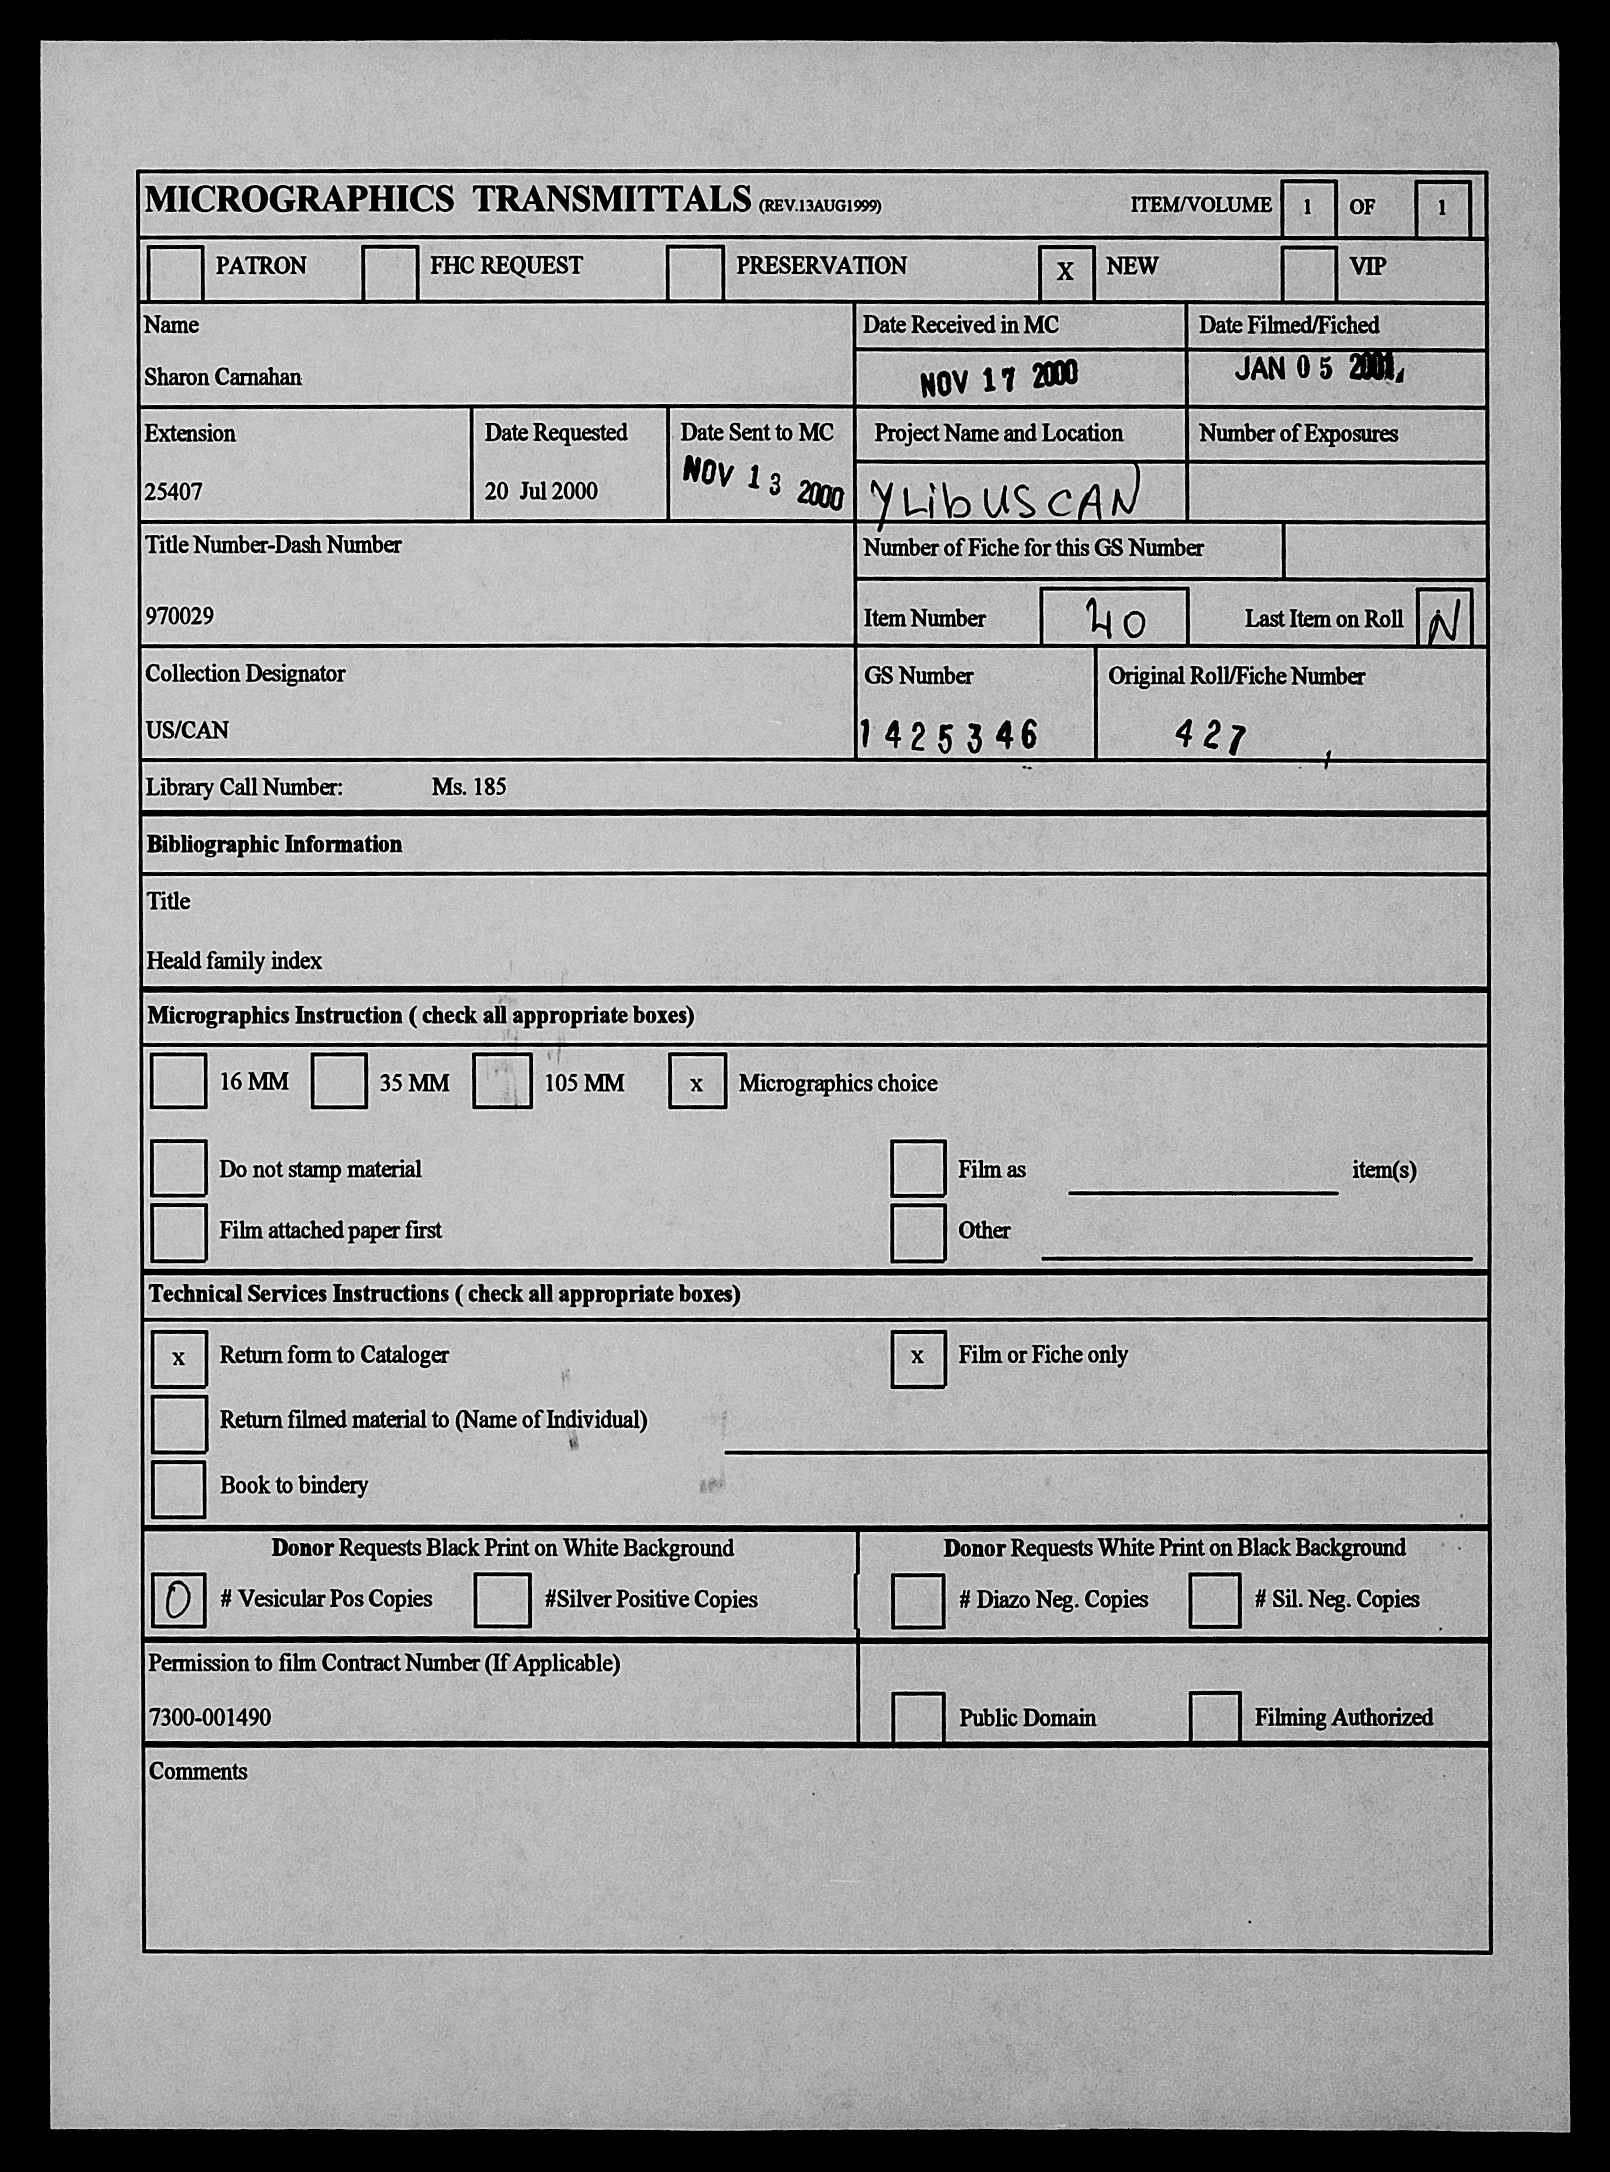 MICROGRAPHICS TRANSMITTALS (REV.13AUG1999) ITEM/VOLUME 1 OF 1
PATRON FHC REQUEST PRESERVATION X NEW VIP
Name Date Received in MC Date Filmed/Fiched
Sharon Carnahan NOV 17 2000 JAN 05 2001
Extension Date Requested Date Sent to MC Project Name and Location Number of Exposures
25407 20 Jul 2000 NOV 13 2000 YLibUSCAN
Title Number-Dash Number Number of Fiche for this GS Number
970029 Item Number 40 Last Item on Roll N
Collection Designator GS Number Original Roll/Fiche Number
US/CAN 1425346 427
Library Call Number: Ms. 185
Bibliographic Information
Title
Heald family index
Micrographics Instruction ( check all appropriate boxes)
16 MM 35 MM 105 MM x Micrographics choice
Do not stamp material Film as item(s)
Film attached paper first Other
Technical Services Instructions ( check all appropriate boxes)
x Return form to Cataloger x Film or Fiche only
Return filmed material to (Name of Individual)
Book to bindery
Donor Requests Black Print on White Background Donor Requests White Print on Black Background
0 # Vesicular Pos Copies #Silver Positive Copies # Diazo Neg. Copies # Sil. Neg. Copies
Permission to film Contract Number (If Applicable)
7300-001490 Public Domain Filming Authorized
Comments